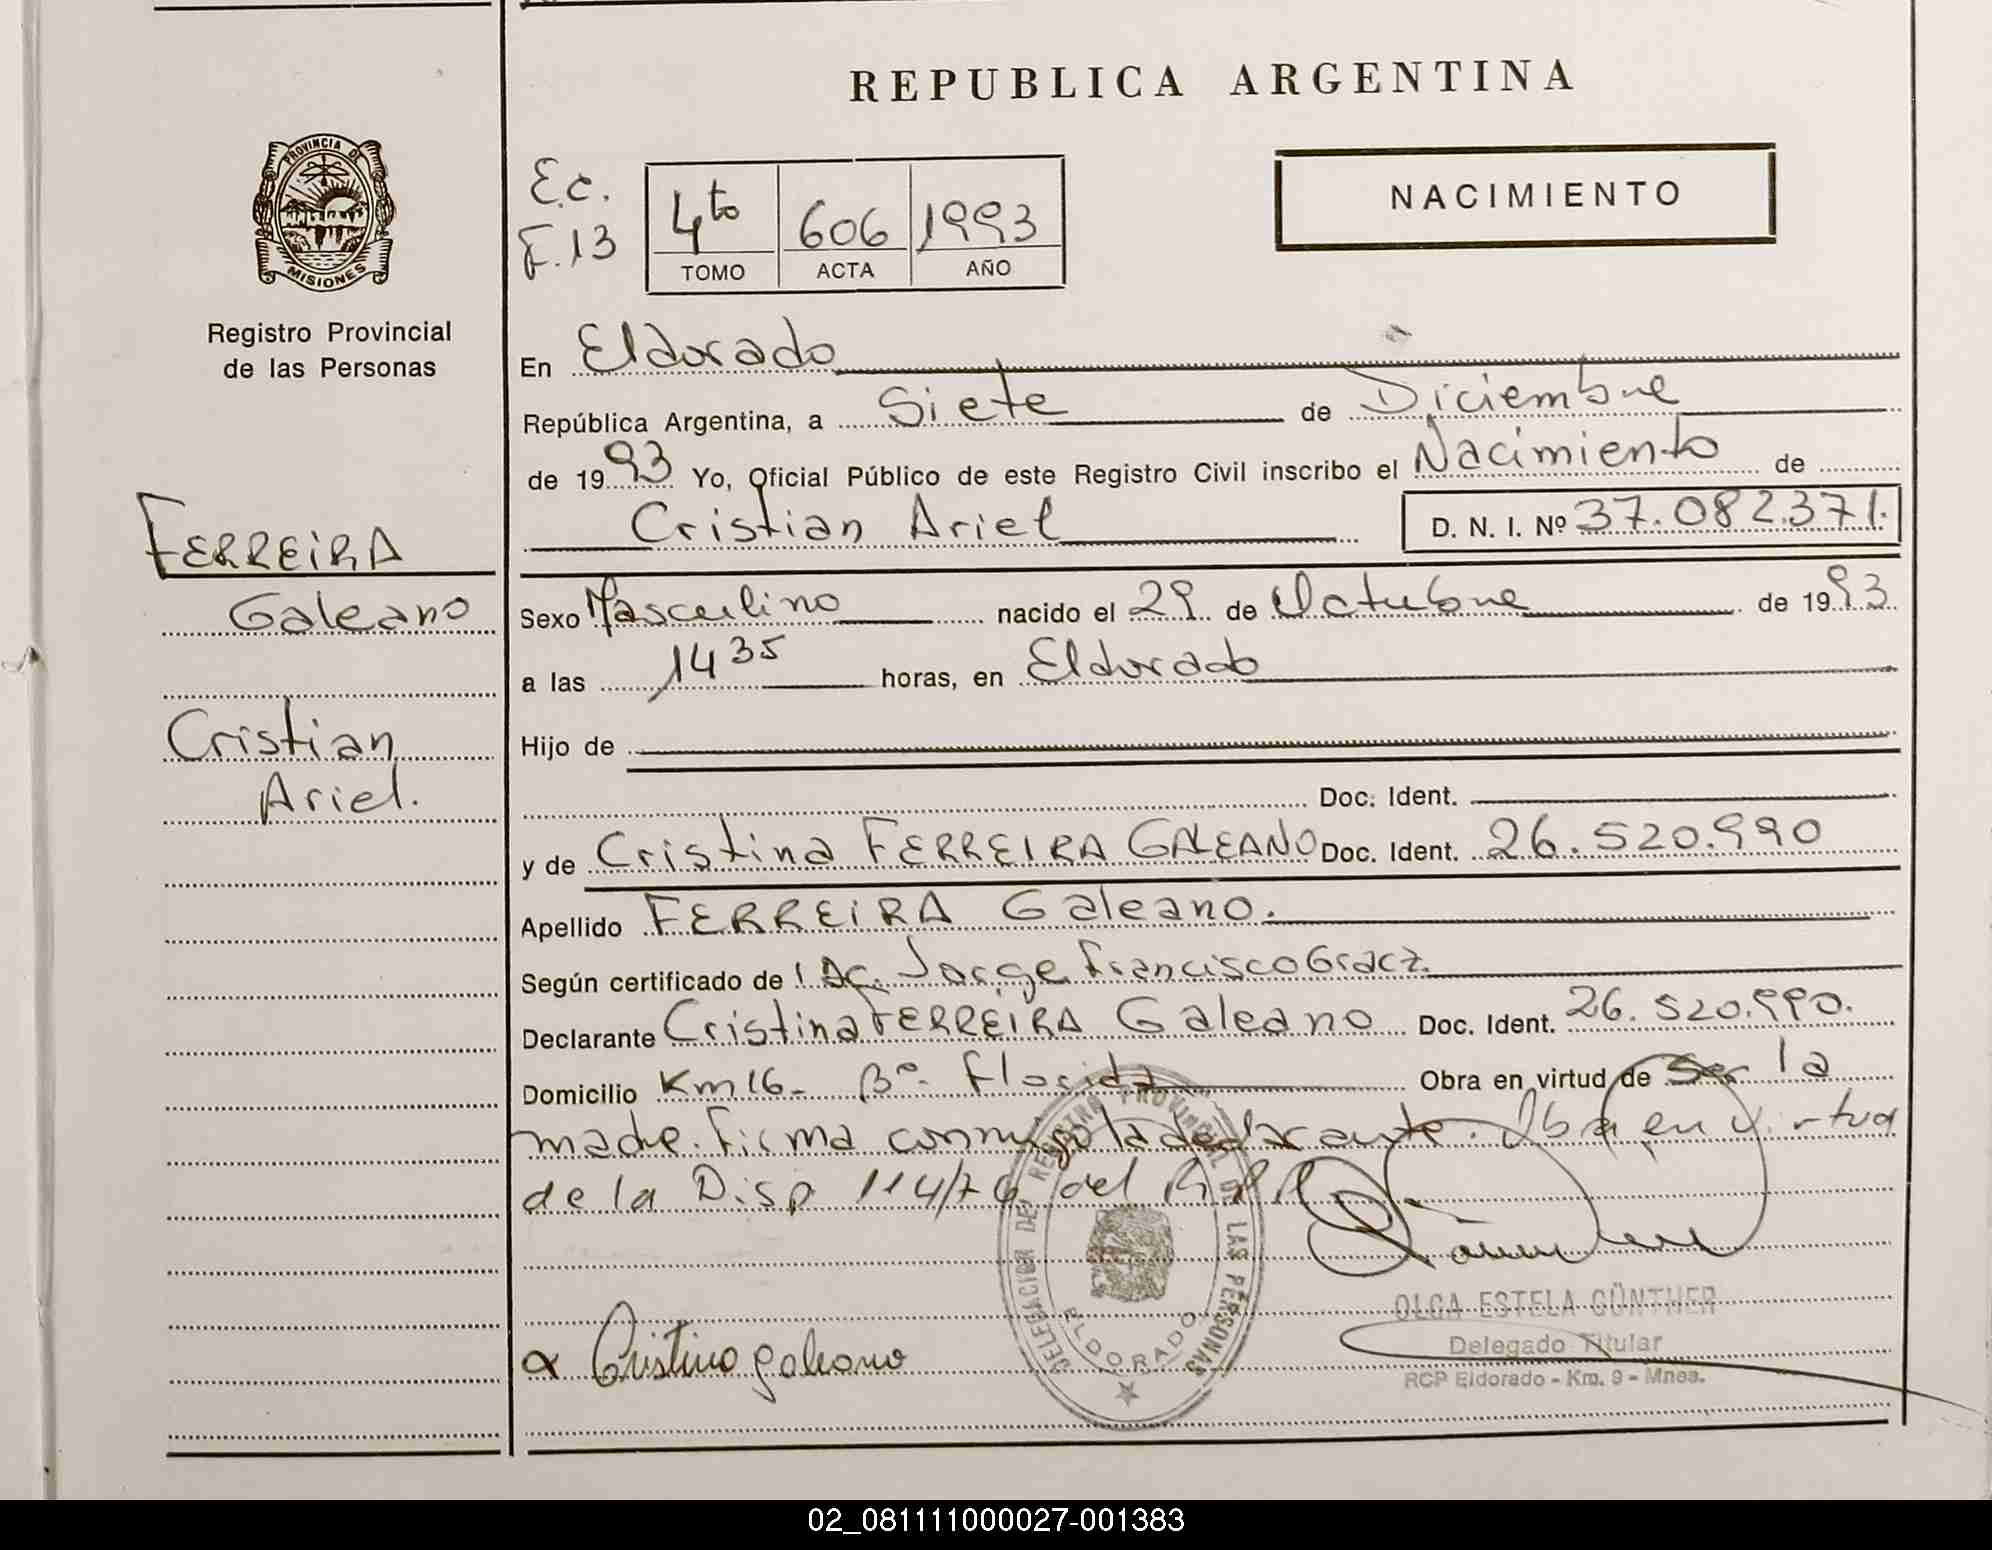 REPUBLICA ARGENTINA
PROVINCIA DE MISIONES
Registro Provincial
de las Personas
FERREIRA
Galeano
Cristian
Ariel.
E.C.
F.13
4to 606 1993
TOMO ACTA AÑO
NACIMIENTO
En Eldorado
República Argentina, a Siete de Diciembre
de 1993 Yo, Oficial Público de este Registro Civil inscribo el Nacimiento de
Cristian Ariel D. N. I. Nº 37.082.371.
Sexo Masculino nacido el 29 de Octubre de 1993
a las 14 35 horas, en Eldorado
Hijo de
Doc. Ident.
y de Cristina FERREIRA GALEANO Doc. Ident. 26.520.990
Apellido FERREIRA Galeano.
Según certificado de Jorge Francisco Gracz.
Declarante Cristina FERREIRA Galeano Doc. Ident. 26.520.990.
Domicilio Km 16- Bº. Florida Obra en virtud de Ser la
madre. Firma conmigo la declarante. Obra en virtud
de la Disp 114/76 del R P P
DELEGACION DEL REGISTRO PROVINCIAL DE LAS PERSONAS
ELDORADO
OLGA ESTELA GÜNTHER
Delegado Titular
RCP Eldorado - Km. 9 - Mnes.
Cristina galeano
02_081111000027-001383